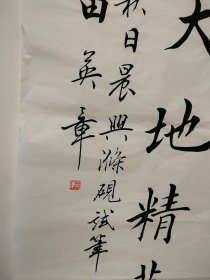 大地精
秋日晨興滌硯試筆
田英章